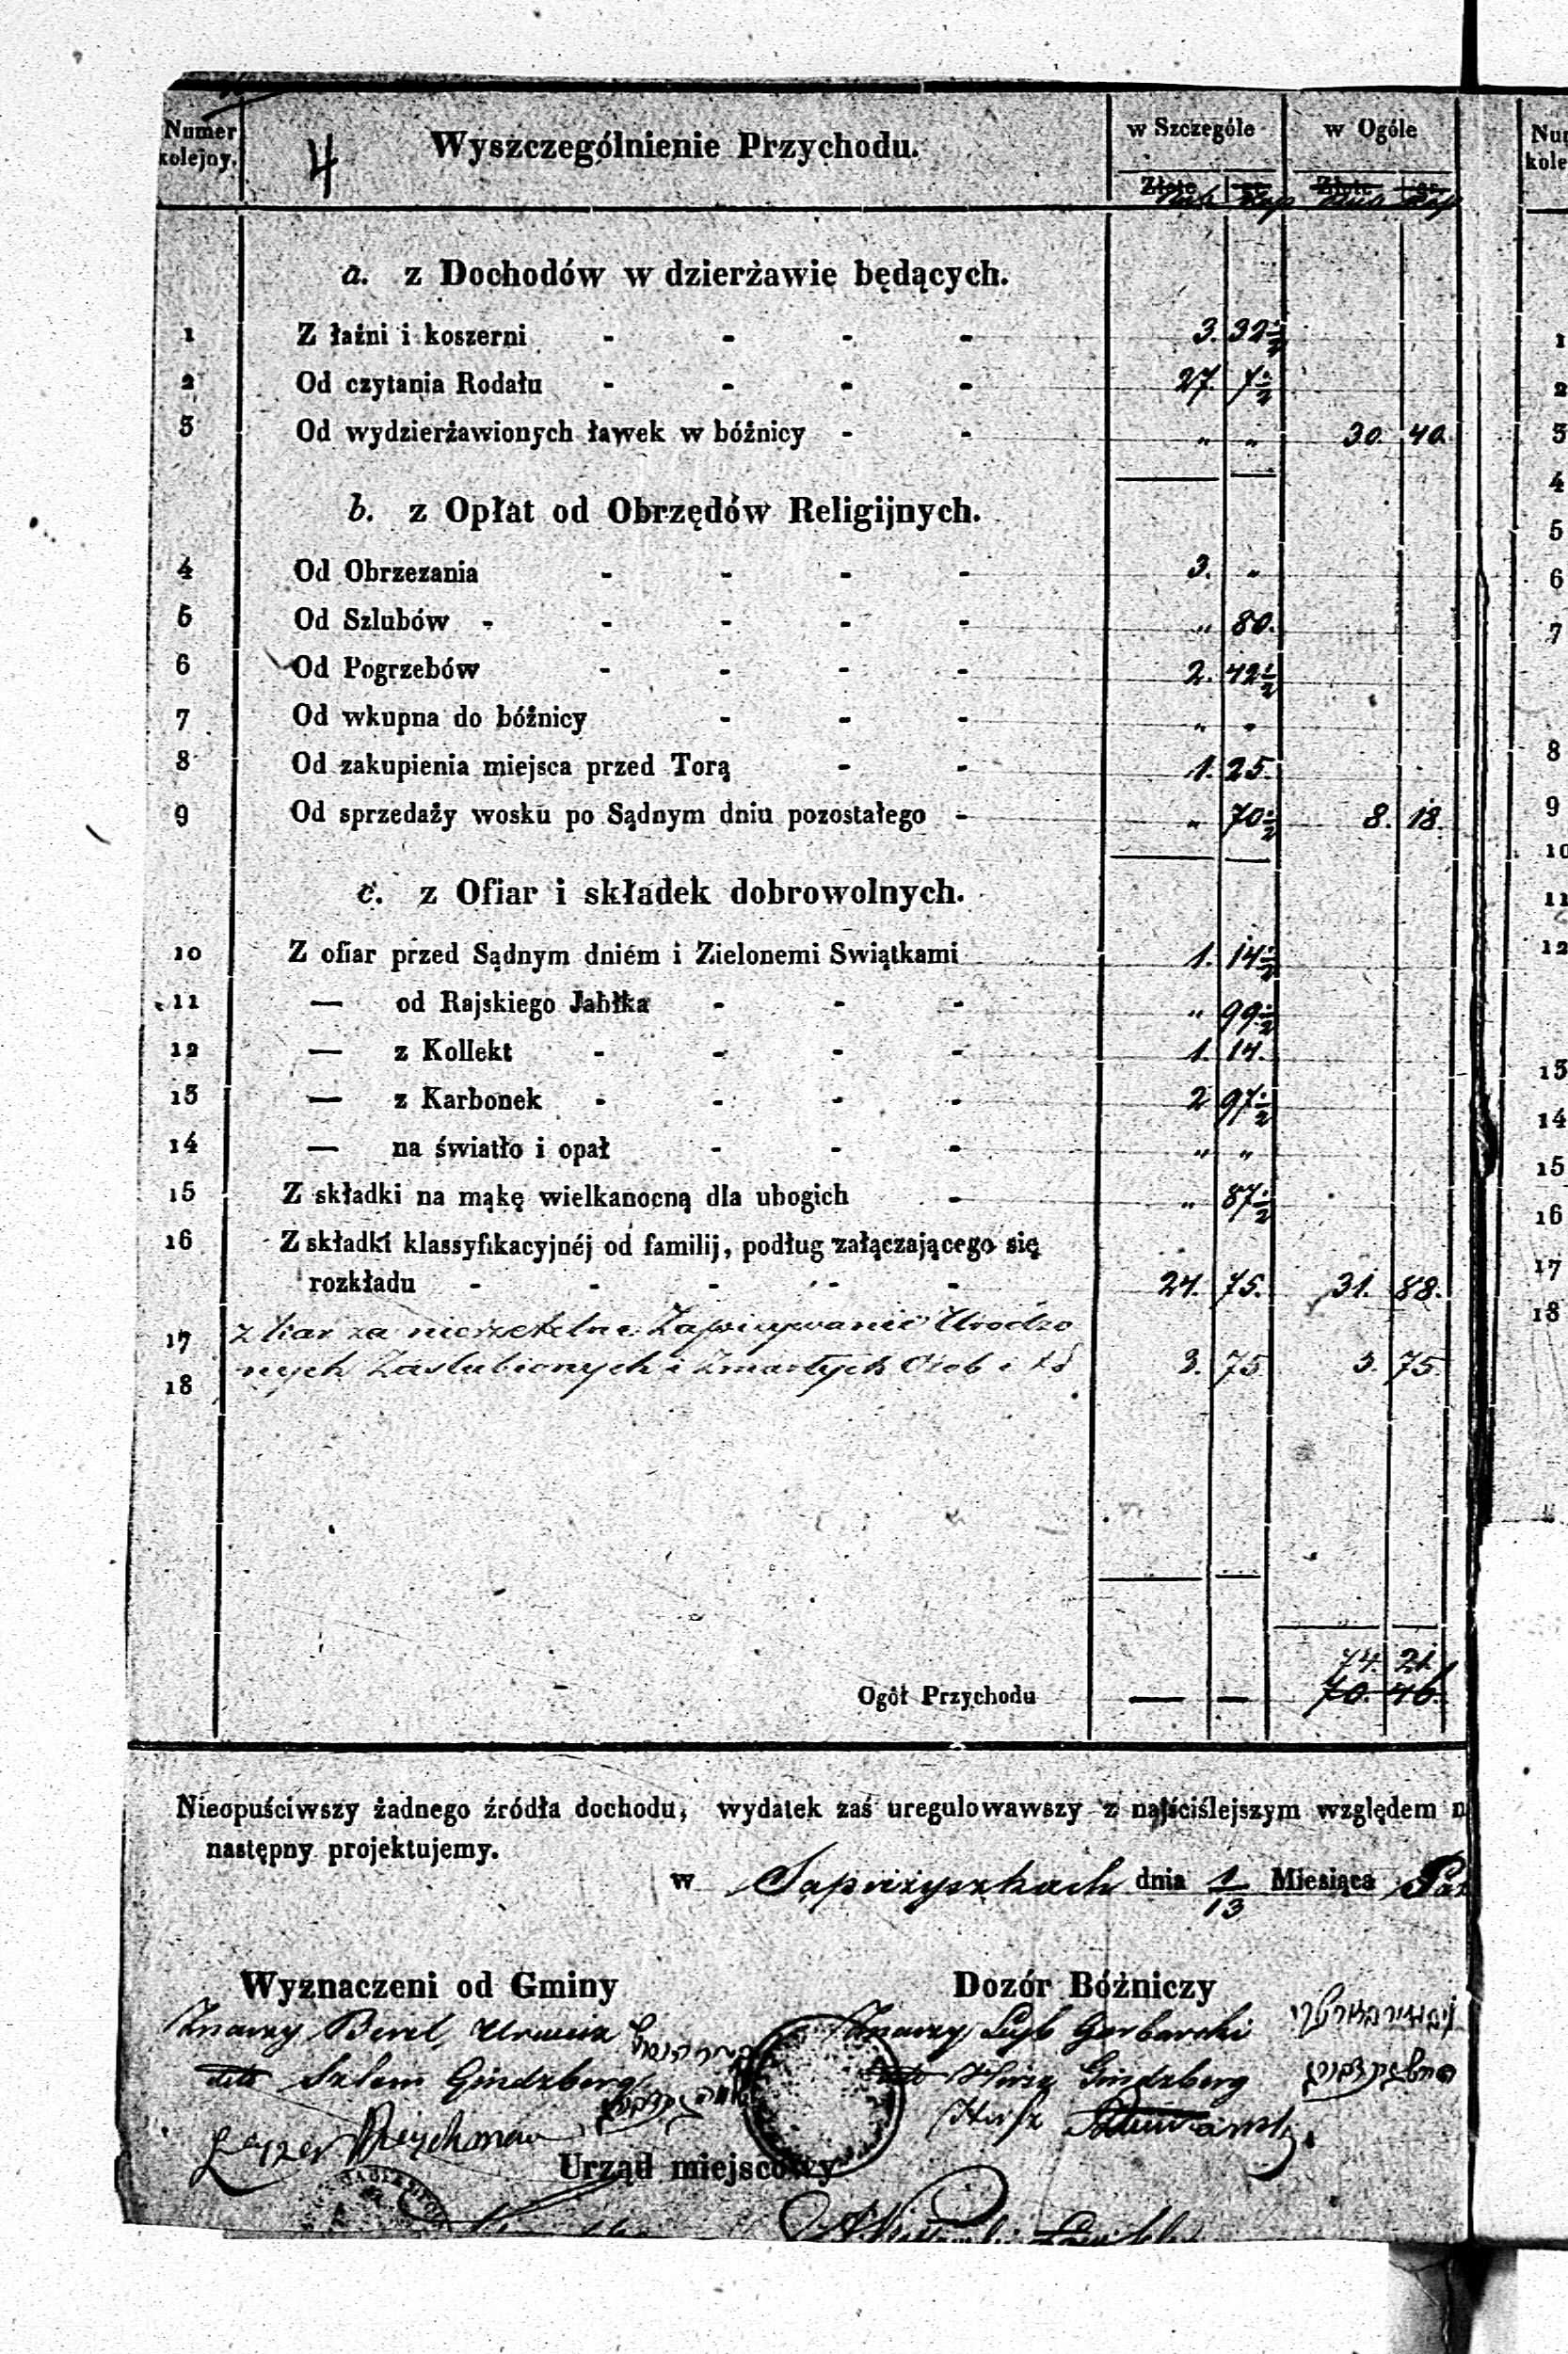 Numer kolejny. 4 Wyszczególnienie Przychodu. w Szczególe w Ogóle
Złote gr. Złote gr.
Rub Kop Rub Kop
a. z Dochodów w dzierżawie będących.
1 Z łaźni i koszerni - - - - 3. 32½
2 Od czytania Rodału - - - - 27. 7½
3 Od wydzierżawionych ławek w bóźnicy - - „ „ 30. 40.
b. z Opłat od Obrzędów Religijnych.
4 Od Obrzezania - - - - 3. „
5 Od Szlubów - - - - - „ 80.
6 Od Pogrzebów - - - - 2. 42½
7 Od wkupna do bóźnicy - - - „ „
8 Od zakupienia miejsca przed Torą - - 1. 25.
9 Od sprzedaży wosku po Sądnym dniu pozostałego - „ 70½ 8. 18.
c. z Ofiar i składek dobrowolnych.
10 Z ofiar przed Sądnym dniém i Zielonemi Swiątkami 1. 14½
11 — od Rajskiego Jabłka - - - „ 99½
12 — z Kollekt - - - - 1. 14.
13 — z Karbonek - - - - 2 97½
14 — na światło i opał - - - „ „
15 Z składki na mąkę wielkanocną dla ubogich - „ 87½
16 Z składki klassyfikacyjnéj od familij, podług załączającego się
rozkładu - - - - - 24. 75. 31. 88.
17 z kar za nierzetelne Zapisywanie Urodzo
18 nych Zaslubionych i Zmarłych Osob 3. 75 3. 75
74. 21.
Ogół Przychodu — — 70. 46.
Nieopuściwszy żadnego źródła dochodu, wydatek zaś uregulowawszy z najściślejszym względem n
następny projektujemy.
w Sapieżyszkach dnia 1/13 Miesiąca Paź
Wyznaczeni od Gminy Dozór Bóżniczy
Znaczy Berel Znaczy Leyb Garbarski
Szlem Gindzberg Hirsz Gindzberg
Leyzer Reychman Hirsz
Urząd miejscowy